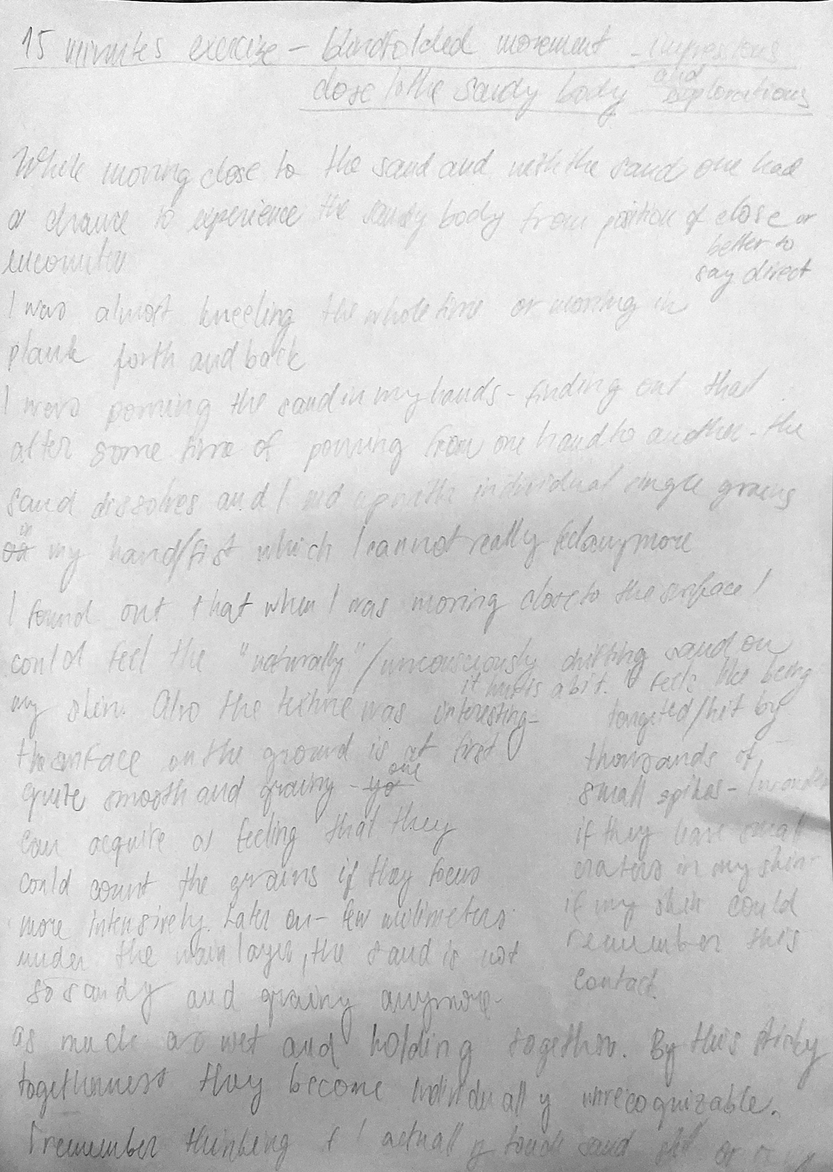 15 minutes exercise – blindfolded movement – impressions
close to the sandy body and explorations
While moving close to the sand and with the sand one had
a chance to experience the sandy body from position of close or
better to
say direct
encounter
I was almost kneeling the whole time or moving in
plank forth and back
I was pouring the sand in my hands – finding out that
after some time of pouring from one hand to another – the
sand dissolves and I end up with individual single grains
in my hand/fist which I cannot really feel anymore
I found out that when I was moving close to the surface I
could feel the "naturally"/unconsciously drifting sand on
my skin. Also the texture was interesting –
the surface on the ground is at first
quite smooth and grainy – one
can acquire a feeling that they
could count the grains if they focus
more intensively. Later on – few milimeters
under the main layer, the sand is not
so sandy and grainy anymore
it hurts a bit. It feels like being
targeted/hit by
thousands of
small spikes – I wonder
if they leave small
craters in my skin –
if my skin could
remember this
contact.
as much as wet and holding together. By this sticky
togetherness they become individually unrecognizable.
I remember thinking if I actually touch sand still or